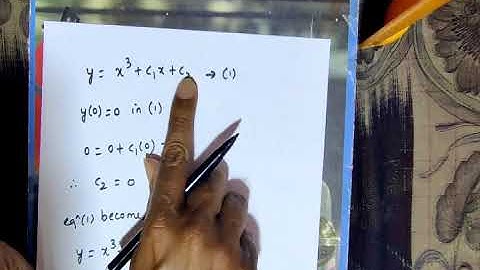 y = x³ + c₁x + c₂ → (1)
y(0) = 0 in (1)
0 = 0 + c₁(0)
∴ c₂ = 0
eqⁿ(1) become
y = x³